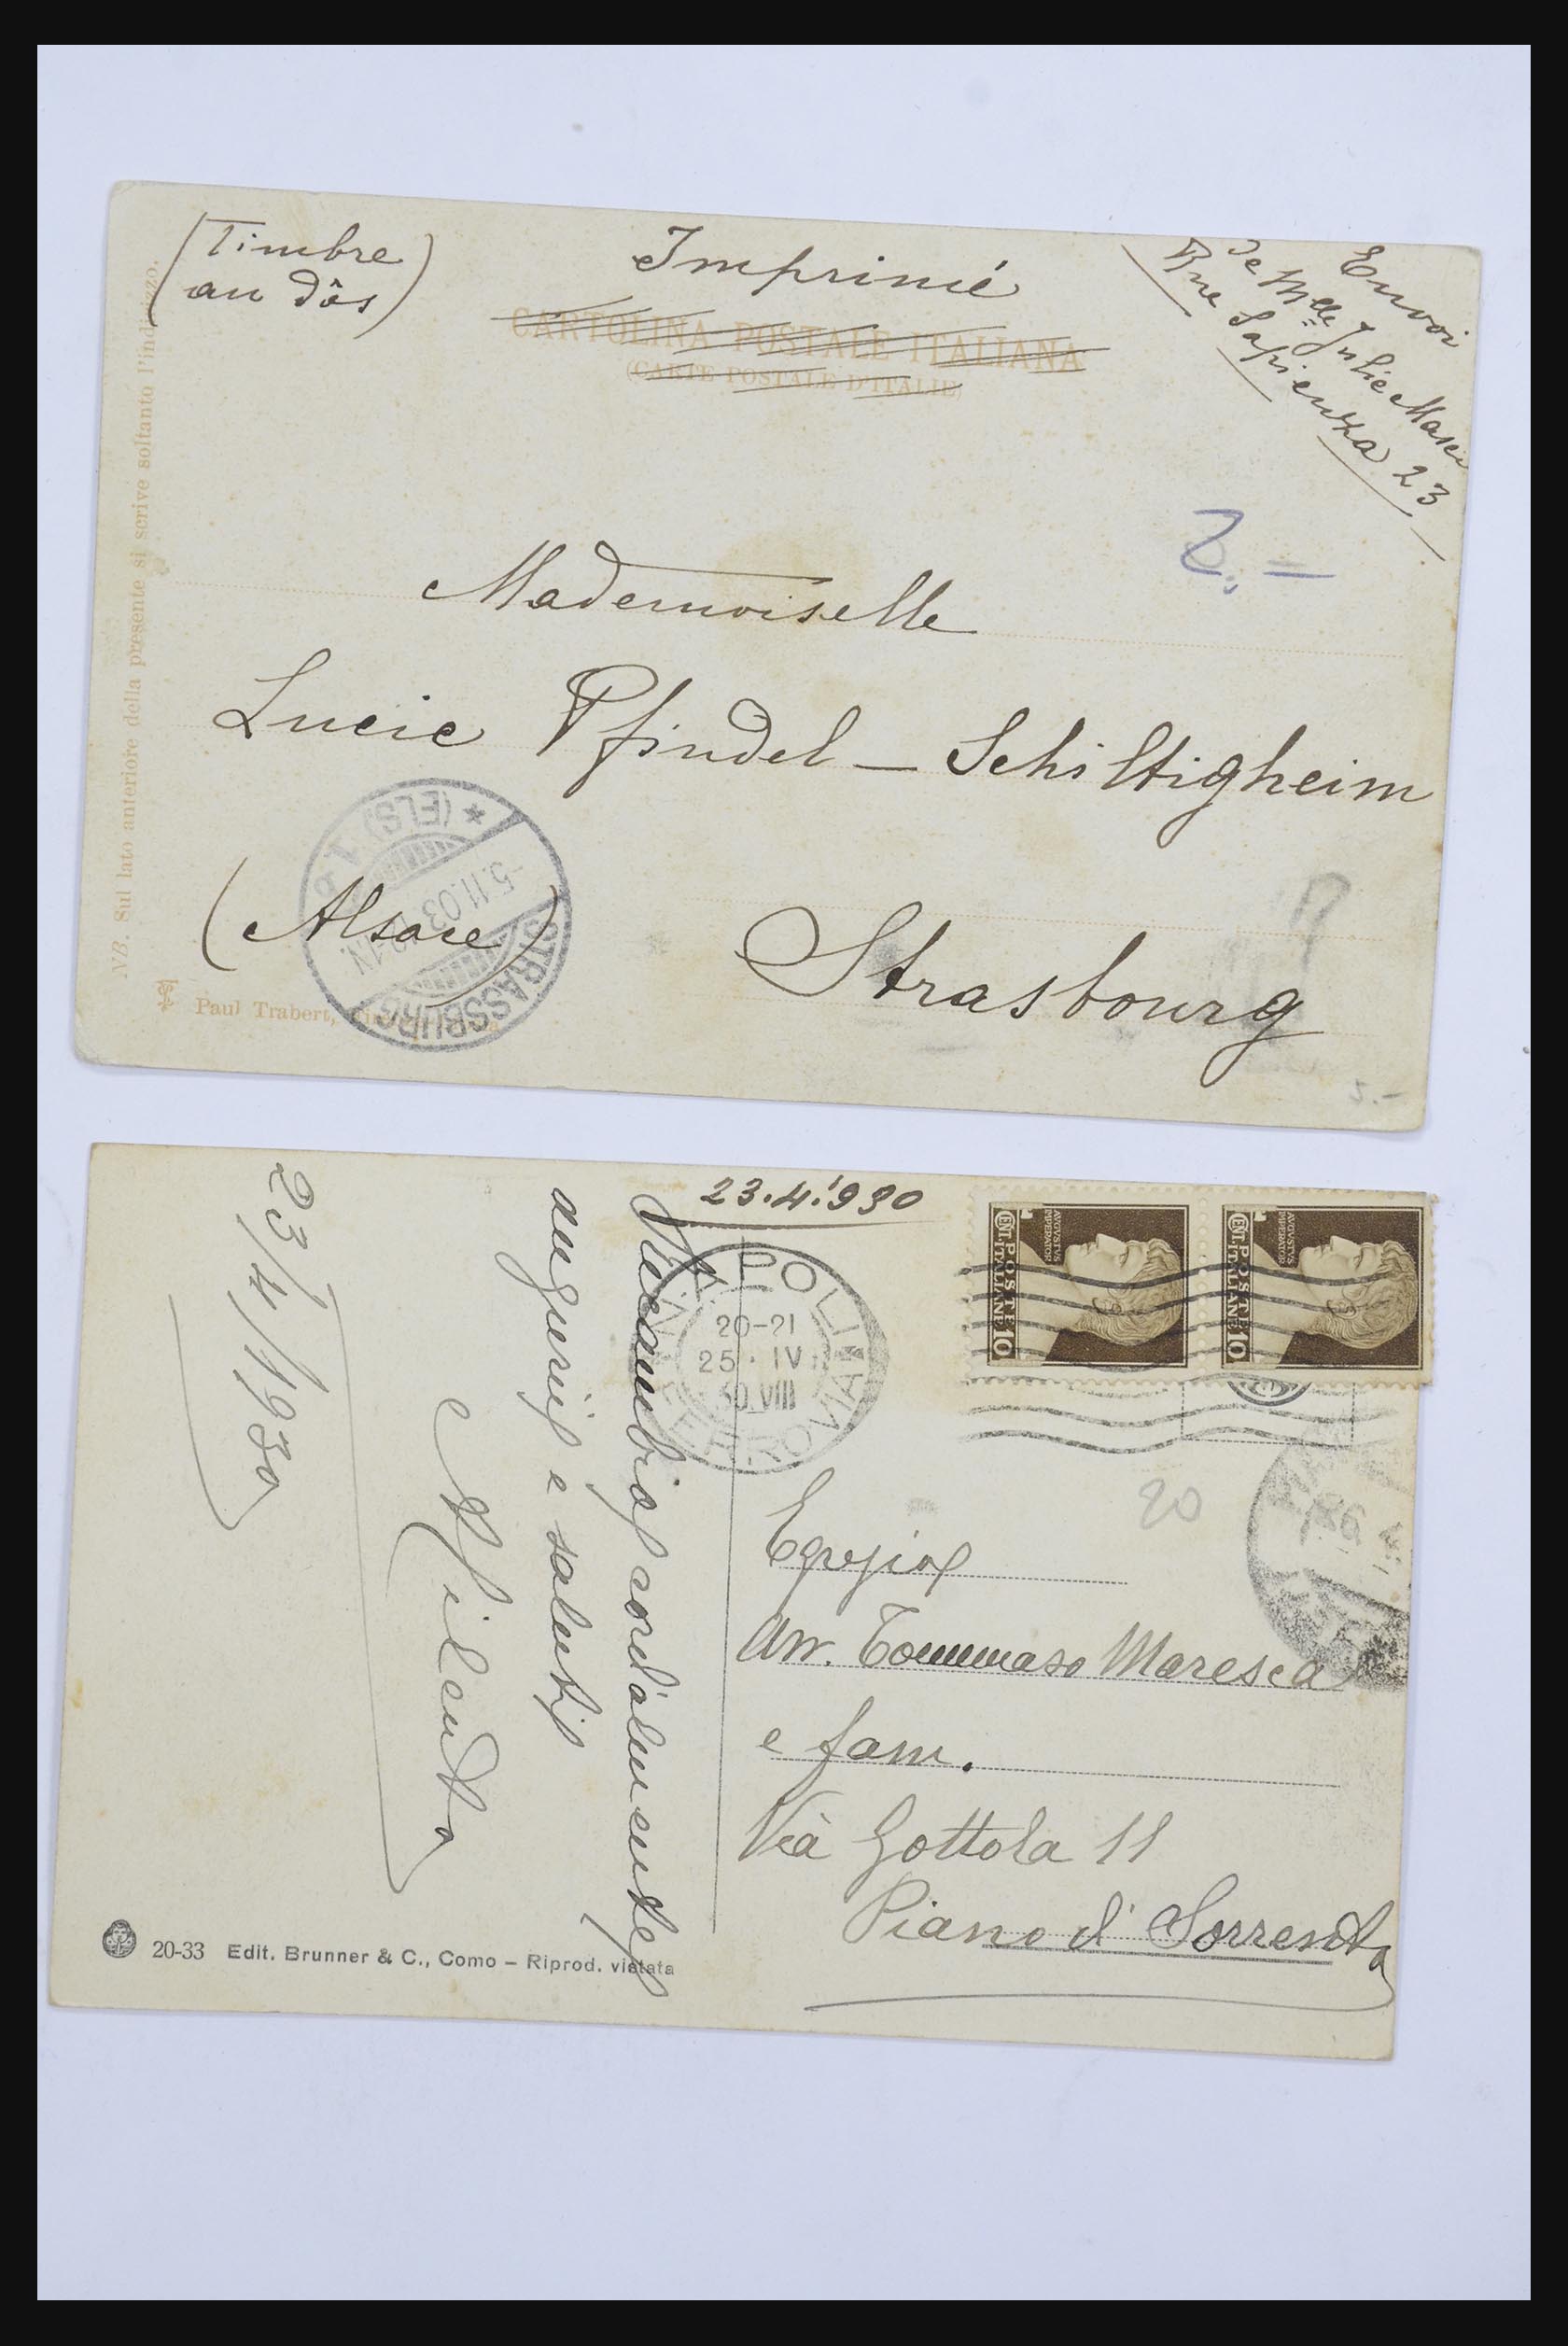 (Timbre
au dôs)
Imprimé
CARTOLINA POSTALE ITALIANA
(CARTE POSTALE D'ITALIE)
Envoi
de Mlle Julie Masci
Rue Sapienza 23
2.-
Mademoiselle
Lucie Pfindel - Schiltigheim
(Alsace)
Strasbourg
STRASSBURG
(ELS)
5.11.03
NB. Sul lato anteriore della presente si scrive soltanto l'indirizzo.
Paul Trabert,
5.-
23.4.1930
POSTE ITALIANE
CENT. 10
AVGVSTVS
IMPERATOR
POSTE ITALIANE
CENT. 10
AVGVSTVS
IMPERATOR
NAPOLI
20-21
25 · IV
30 VIII
FERROVIA
Ricambio cordialmente
auguri e saluti
23/4/1930
20
Egregio
Avv. Tommaso Maresca
e fam.
Via Gottola 11
Piano d' Sorrento
20-33 Edit. Brunner & C., Como – Riprod. vietata